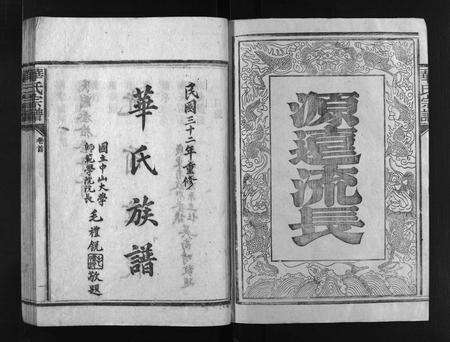 源遠流長
民國三十二年重修
華氏族譜
國立中山大學
師範學院院長
毛禮銳敬題
華氏宗譜
卷首